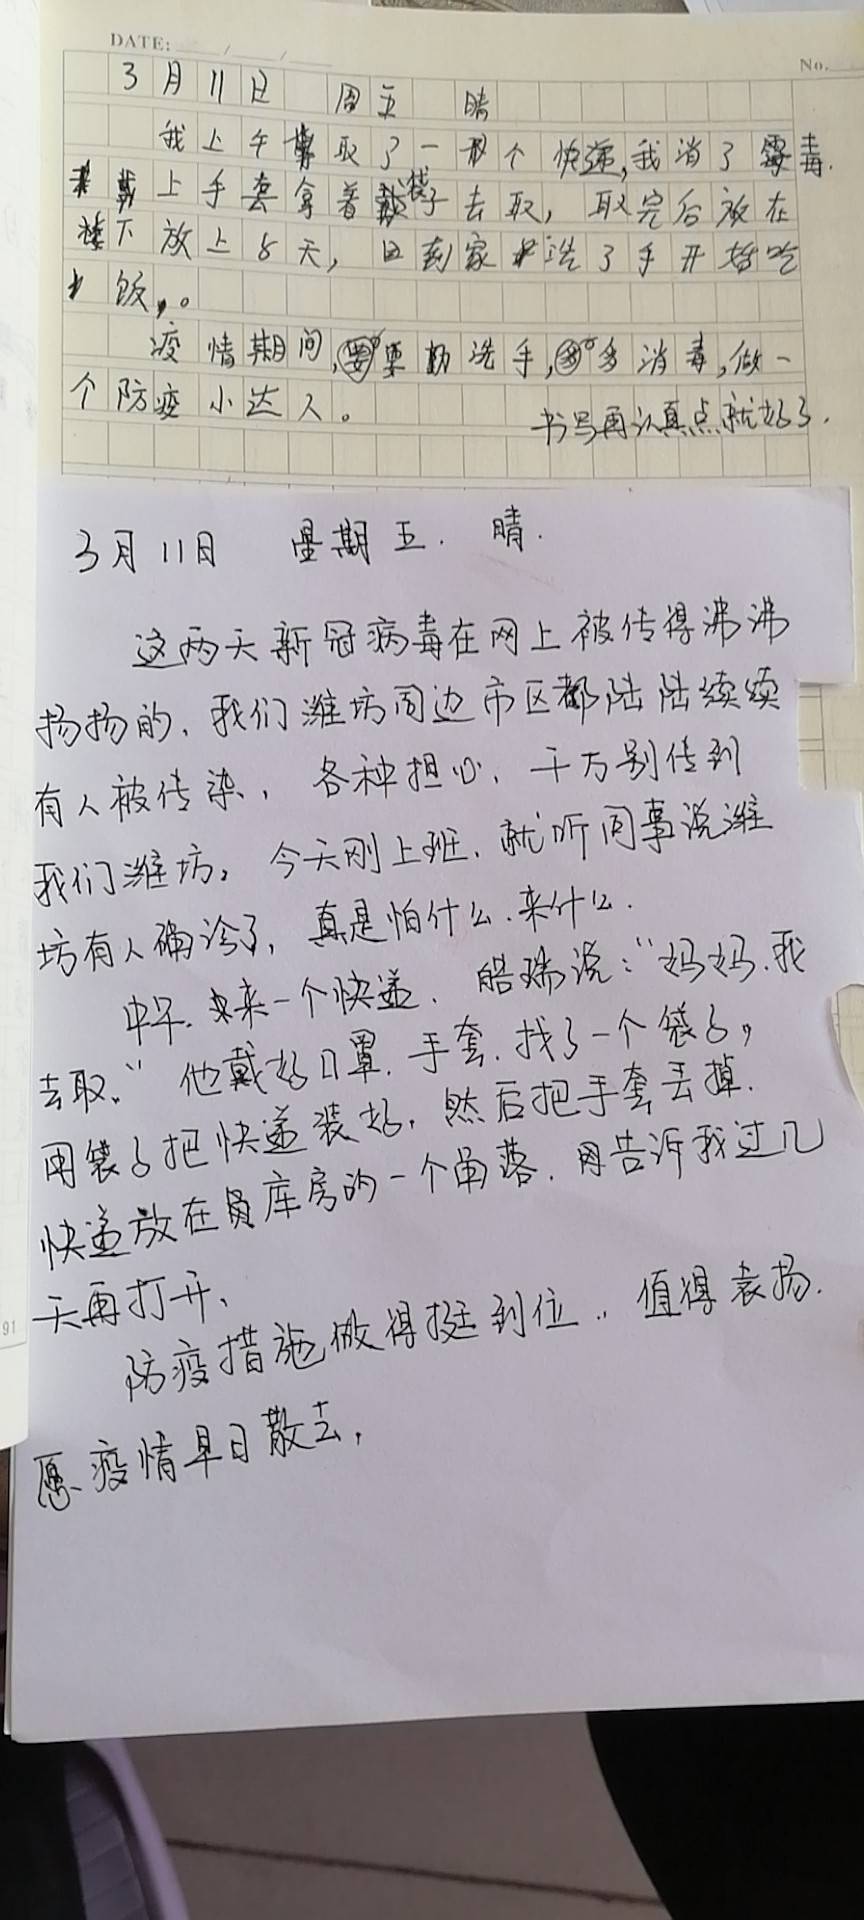 DATE: / /
No.
3月11日 周五 晴
我上午取了一个快递,我消了毒.
戴上手套拿着袋子去取,取完后放在
楼下放上8天,回到家洗了手开始吃
饭。
疫情期间,要勤洗手,多消毒,做一
个防疫小达人。
书写再认真点就好了.
3月11日 星期五. 晴.
这两天新冠病毒在网上被传得沸沸
扬扬的,我们潍坊周边市区都陆陆续续
有人被传染,各种担心,千万别传到
我们潍坊。今天刚上班,就听同事说潍
坊有人确诊了,真是怕什么.来什么.
中午.来一个快递.皓瑞说:“妈妈.我
去取。”他戴好口罩.手套.找了一个袋子,
用袋子把快递装好,然后把手套丢掉.
快递放在库房的一个角落.告诉我过几
天再打开、
防疫措施做得挺到位,值得表扬.
愿疫情早日散去,
91